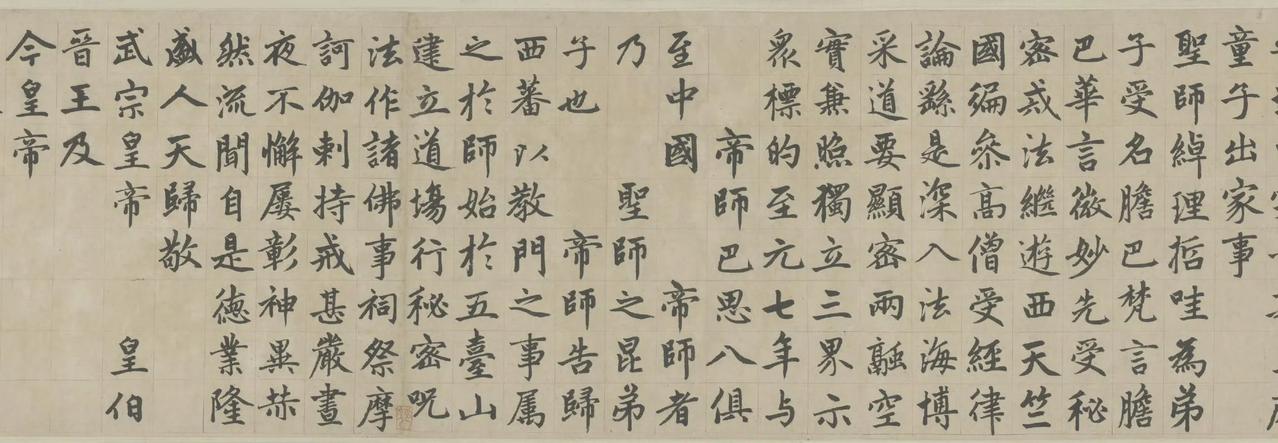 童子出家事
聖師綽理哲哇為弟
子受名膽巴梵言膽
巴華言微妙先受秘
密戒法繼遊西天竺
國徧叅高僧受經律
論繇是深入法海博
采道要顯密兩融空
實兼照獨立三界示
眾標的至元七年与
帝師巴思八俱
至中國 帝師者
乃 聖師之昆弟
子也 帝師告歸
西蕃以教門之事属
之於師始於五臺山
建立道場行秘密咒
法作諸佛事祠祭摩
訶伽剌持戒甚嚴晝
夜不懈屢彰神異赫
然流聞自是德業隆
盛人天歸敬
武宗皇帝 皇伯
晉王及
今皇帝